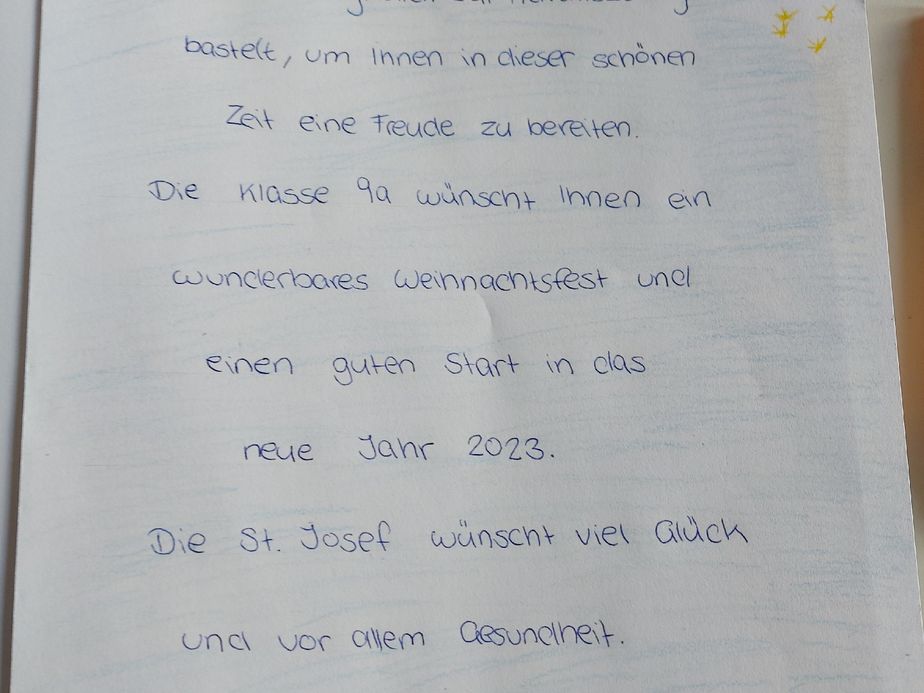 bastelt, um Ihnen in dieser schönen
Zeit eine Freude zu bereiten.
Die Klasse 9a wünscht Ihnen ein
wunderbares Weihnachtsfest und
einen guten Start in das
neue Jahr 2023.
Die St. Josef wünscht viel Glück
und vor allem Gesundheit.